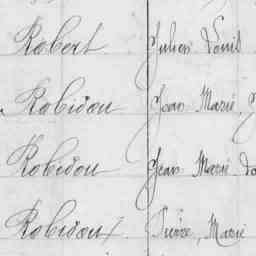 Robert Julien Louis
Robidou Jean Marie,
Robidou Jean Marie
Robidoux Pierre, Marie